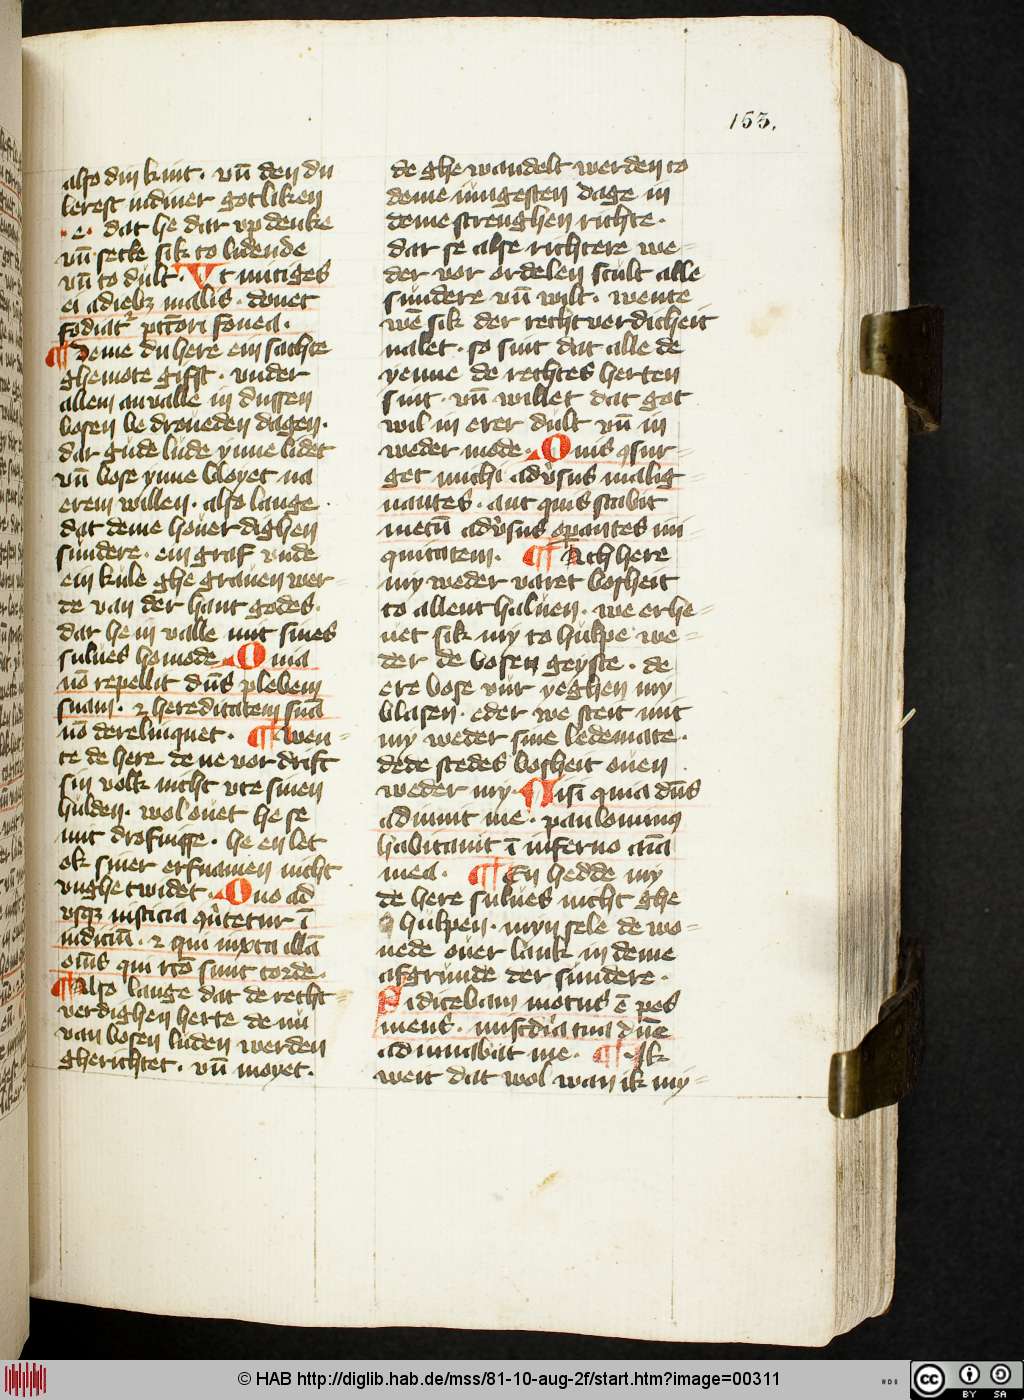 153.
also din kint. vn̄ den du
lerest in diner gotliken
.e. dat he dar vp denke
vn̄ sette sik to lidende
vn̄ to dult. Vt mitiges
ei a dieb3 malis. donec
fodiat᷑ pcc̄ori fovea.
¶ Deme du here ein sachte
ghemote gifst. vnder
allem anvalle in dussen
bosen bedroueden dagen.
dar gude lude ynne lidet
vn̄ bose ynne bloyet na
erem willen. also lange
dat deme houerdighen
sundere. ein graf vnde
ein kule ghegrauen wer=
de van der hant godes.
dar he in valle mit sines
sulues homode. Q uia
nō repellit dn̄s plebem
suam. ⁊ hereditatem suā
nō derelinquet. ¶ Wen=
te de here de ne vordrift
sin volk nicht vte sinen
hulden. wol ouet he se
mit drofnisse. he en let
ok siner erfnamen nicht
vnghetwidet. Q uo ad
vsq3 iusticia 9ūtetur ī
iudiciū. ⁊ qui iuxta illā
om̄s qui rc̄o sunt corde.
¶ Also lange dat de recht=
verdighen herte de nu
van bosen luden werden
gherichtet. vn̄ moyet.
de ghewandelt werden to
deme iungesten dage in
deme strenghen richte.
dar se alse richtere we=
der vor ordelen scult alle
sundere vn̄ wilt. wente
wē sik der rechtverdicheit
nalet. so sint dat alle de
yenne de rechtes herten
sint. vn̄ willet dat got
wil in erer dult vn̄ in
weder mode. Q uis 9sur=
get michi adv̄sus malig=
nantes. aut quis stabit
mecū adv̄sus op̄antes ini
quitatem. ¶ Ach here
my weder varet bosheit
to allent haluen. we erhe=
uet sik my to hulpe we=
der de bosen geyste. de
ere bose vur yeghen my
blasen. eder we steit mit
my weder sine ledemate.
dede stedes bosheit ouen
weder my. N isi quia dn̄s
adiuuit me. paulominus
habitauit ī inferno aīa
mea. ¶ En hedde my
de here sulues nicht ghe
hulpen. myn sele de wo=
nede ouer lank in deme
afgrunde der sundere.
S i dicebam motus ē pes
meus. miscd̄ia tua dn̄e
adiuuabat me. ¶ Ik
weit dat wol wan ik my=
© HAB http://diglib.hab.de/mss/81-10-aug-2f/start.htm?image=00311
BY SA